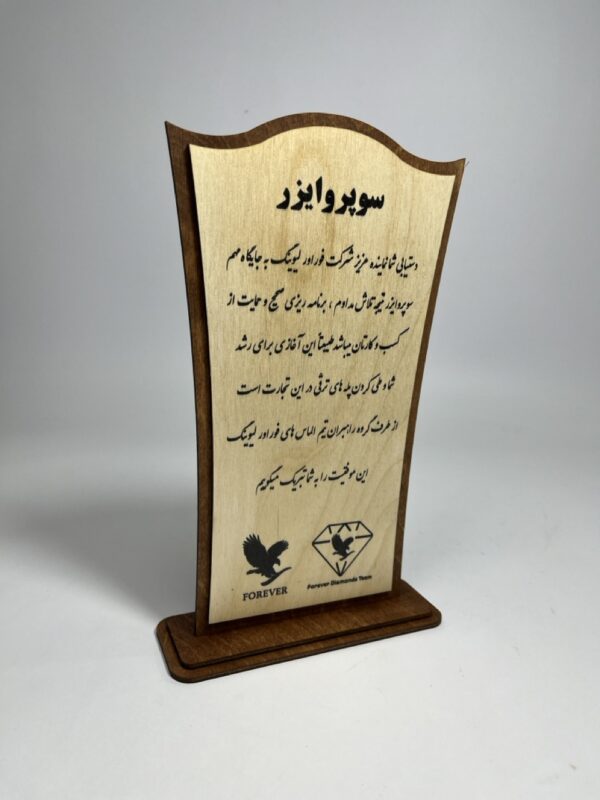 سوپروایزر
دستیابی شما نماینده عزیز شرکت فوراور لیوینگ به جایگاه مهم
سوپروایزر نتیجه تلاش مداوم ، برنامه ریزی صحیح و حمایت از
کسب و کارتان میباشد طبیعتاً این آغازی برای رشد
شما و طی کردن پله های ترقی در این تجارت است
از طرف گروه راهبران تیم الماس های فوراور لیوینگ
این موفقیت را به شما تبریک میگوییم
FOREVER
Forever Diamonds Team